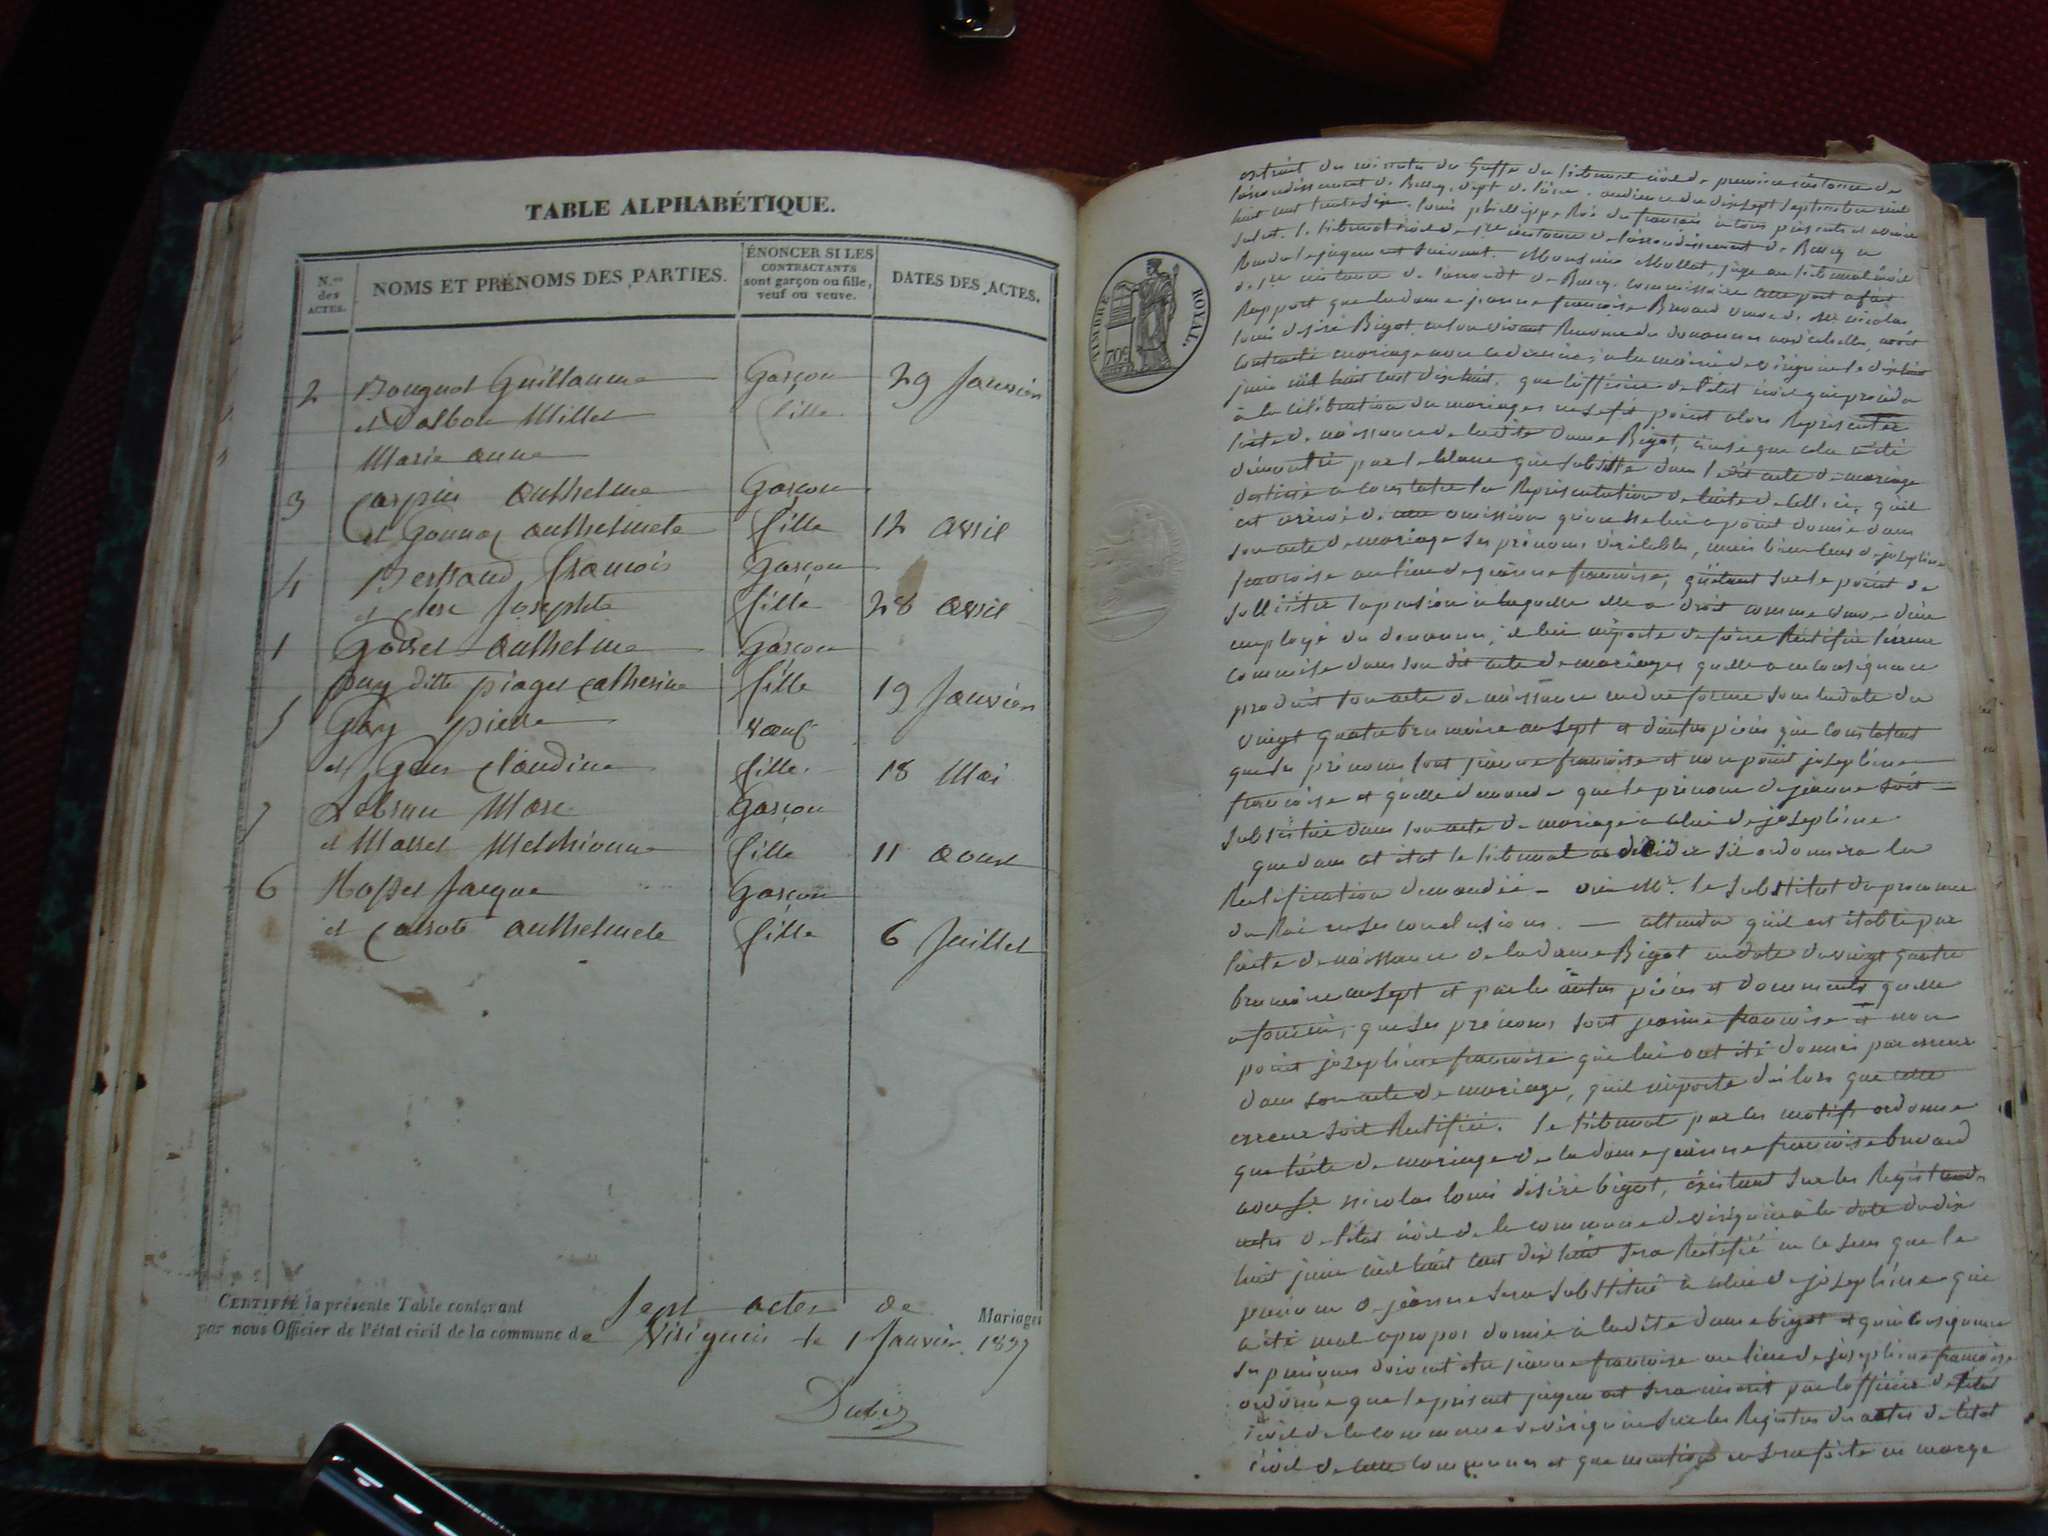 TABLE ALPHABÉTIQUE.
N.os des ACTES.
NOMS ET PRÉNOMS DES PARTIES.
ÉNONCER SI LES
CONTRACTANTS
sont garçon ou fille,
veuf ou veuve.
DATES DES ACTES.
2 Guillaume Garçon 29 Janvier
et Millet fille
Marie anne
3 Carpin anthelme Garçon
et anthelmete fille 12 avril
4 Bertrand francois Garçon
et clerc Josephte fille 28 avril
1 Godet anthelme Garçon
puy ditte piaget catherine fille 19 Janvier
5 Gay pierre
et Claudine fille 18 Mai
7 Lebrun Marc Garçon
et Marret Melchionne fille 11 aoust
6 Jacque Garçon
et anthelmete fille 6 Juillet
CERTIFIÉ la présente Table contenant sept actes de Mariages
par nous Officier de l'état civil de la commune de Virignin le 1 Janvier 1837
TIMBRE ROYAL.
70c
extrait du minutes du Greffe du tribunal civil de premiere instance de
l'arrondissement de audience du dixsept septembre mil
huit cent trente six. louis philippe Roi des français à tous présents et à venir
salut. le tribunal civil de 1re instance de l'arrondissement de a
Rendu le jugement suivant. Monsieur Mollet, juge au tribunal civil
de 1re instance de commissaire cette part a fait
Rapport que la dame jeanne francoise veuve de Mr nicolas
louis desiré Bigot, en son vivant des douanes avoit
contracté mariage avec ce dernier, à la mairie de virignin le dix huit
juin mil huit cent dix huit. que l'officier de l'état civil qui procéda
à la célébration du mariage ne se fit point alors Représenter
l'acte de naissance de la dite dame Bigot, ainsi que cela a été
démontré par le blanc qui subsiste dans le dit acte de mariage
destiné à constater la Représentation de l'acte de celle ci, qu'il
est arrivé de cette omission qu'on ne lui a point donné dans
son acte de mariage ses prénoms véritables, mais bien ceux de josephine
francoise au lieu de jeanne francoise, qu'étant sur le point de
solliciter la pension à laquelle elle a droit comme veuve d'un
employé des douanes, il lui importe de faire Rectifier l'erreur
commise dans son dit acte de mariage, qu'elle a en conséquence
produit son acte de naissance en due forme sous la date du
vingt quatre brumaire an sept et d'autres pièces qui constatent
que ses prénoms sont jeanne francoise et non point josephine
francoise et qu'elle demande que le prénom de jeanne soit
substitué dans son acte de mariage à celui de josephine.
que dans cet état le tribunal a à décider s'il ordonnera la
Rectification demandée — ouï Mr. le substitut du procureur
du Roi en ses conclusions. — attendu qu'il est établi par
l'acte de naissance de la dame Bigot en date du vingt quatre
brumaire an sept et par les autres pièces et documents qu'elle
a fourni, que ses prénoms sont jeanne francoise et non
point josephine francoise qui lui ont été donnés par erreur
dans son acte de mariage, qu'il importe dès lors que cette
erreur soit Rectifiée. le tribunal par ces motifs ordonne
que l'acte de mariage de la dame jeanne francoise
avec Sr nicolas louis désiré bigot, existant sur les Registres des
actes de l'état civil de la commune de virignin à la date du dix
huit juin mil huit cent dix huit sera Rectifié en ce sens que le
prénom de jeanne sera substitué à celui de josephine qui
a été mal à propos donné à la dite dame bigot et qu'en conséquence
ses prénoms doivent être jeanne francoise au lieu de josephine francoise
ordonne que le présent jugement sera inscrit par l'officier de l'état
civil de la commune de virignin sur les Registres des actes de l'état
civil de cette commune et que mention en sera faite en marge